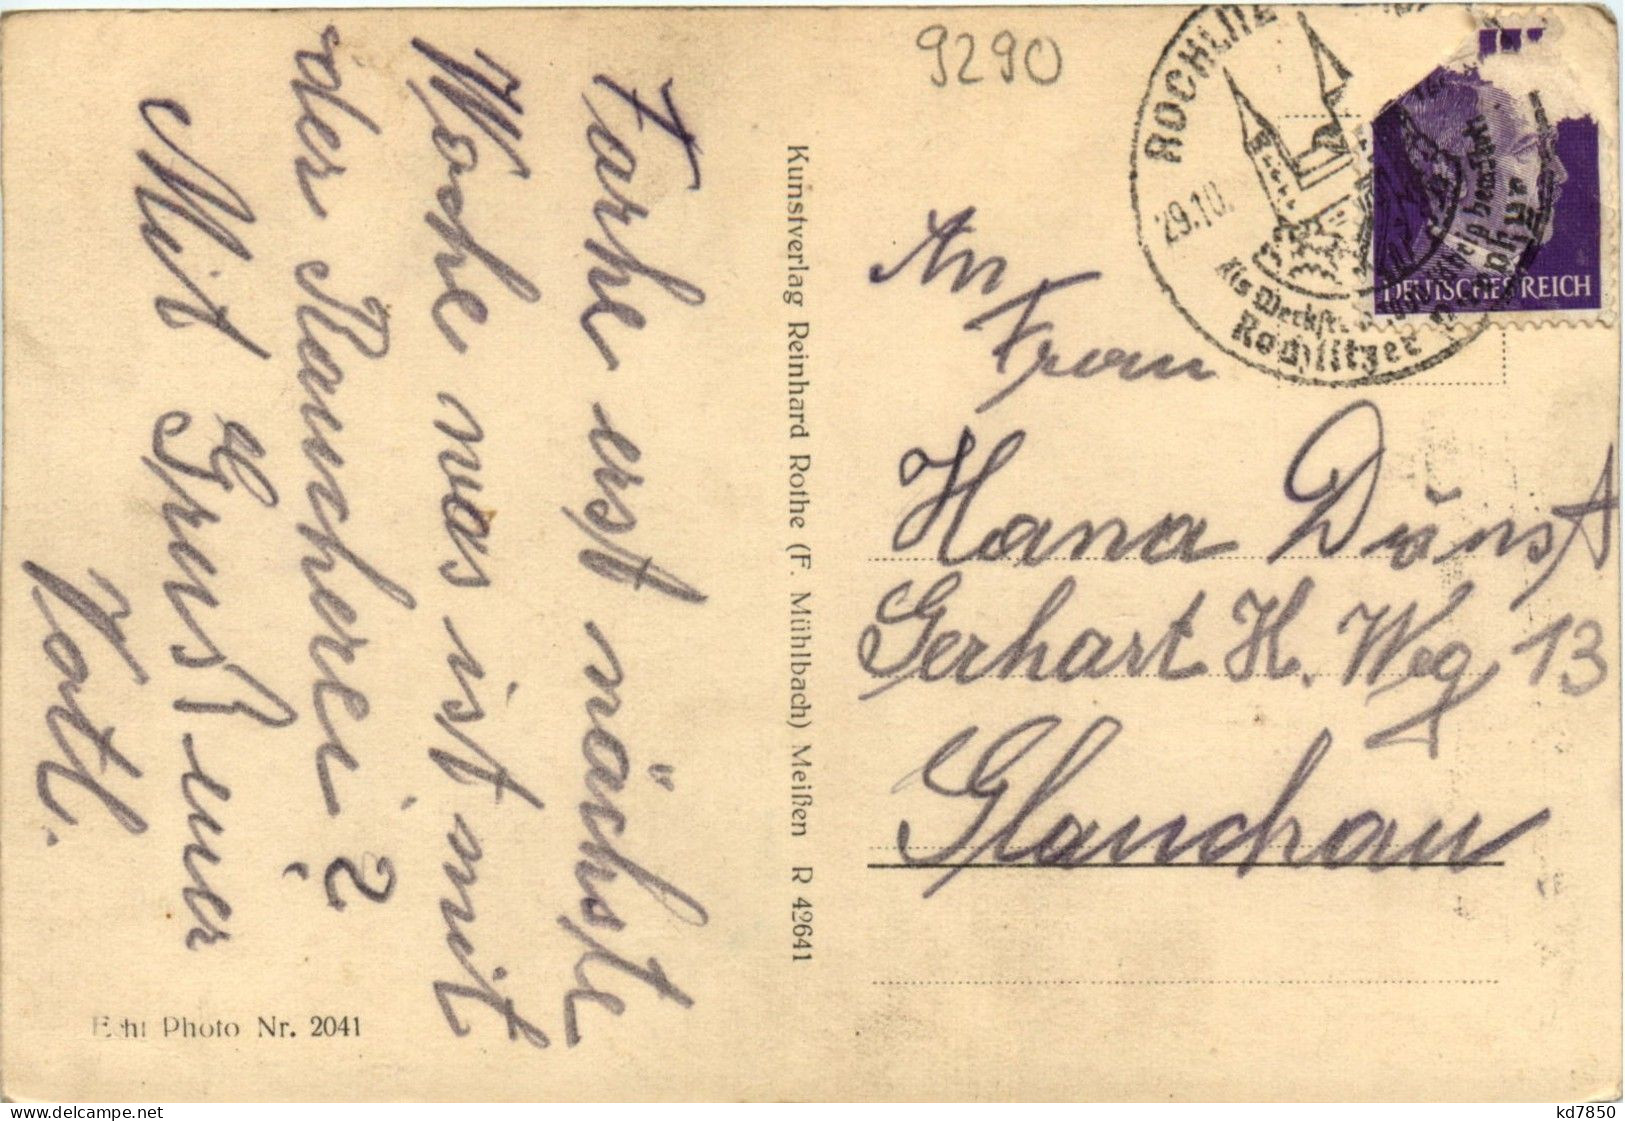 Farhe erst nächste
Woche was ist mit
der Raucherei?
Mit Gruss euer
Vatl.
Echt Photo Nr. 2041
Kunstverlag Reinhard Rothe (F. Mühlbach) Meißen R 42641
9290
ROCHLITZ
29.10.
Rochlitzer Porphyr
DEUTSCHES REICH
An
Frau
Hana Dünst
Gerhart H. Weg 13
Glauchau
kd7850